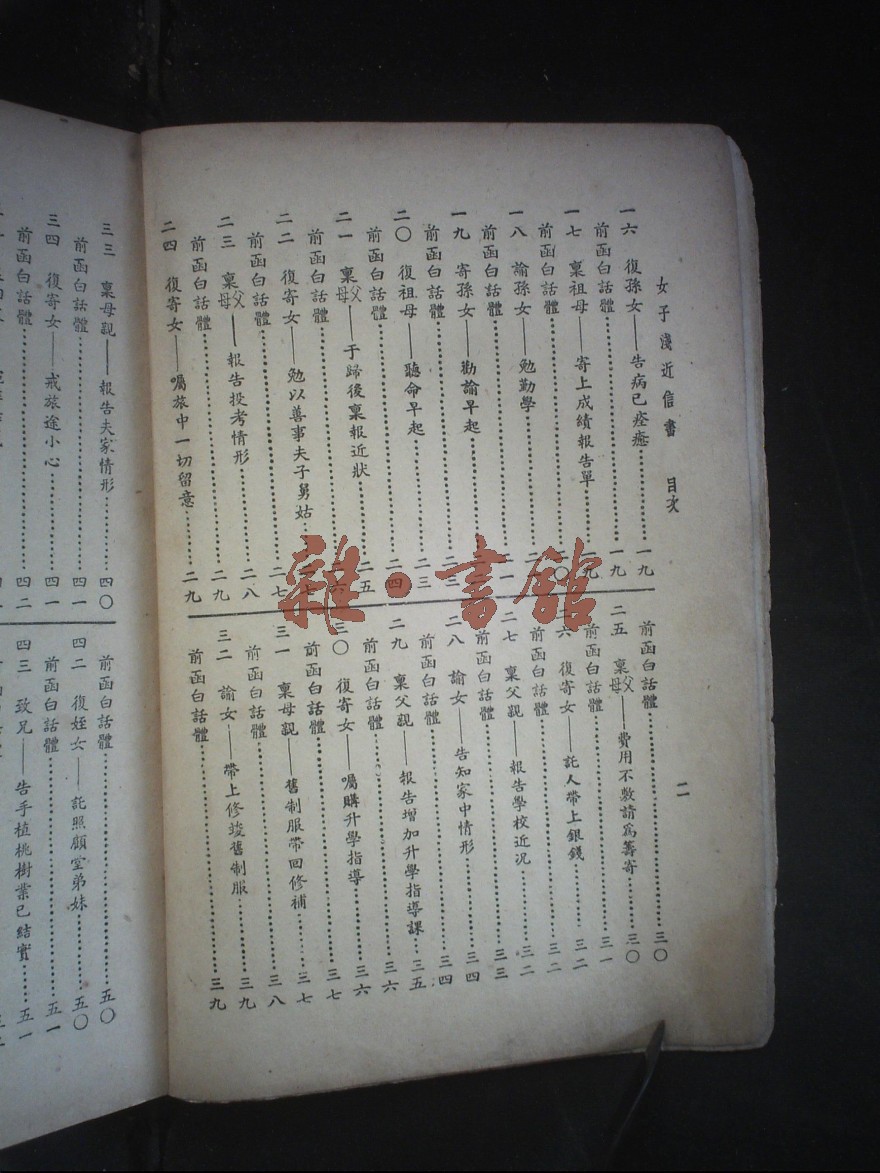 女子淺近信書 目次
二
一六 復孫女——告病已痊癒……一九
前函白話體……一九
一七 稟祖母——寄上成績報告單……一九
前函白話體……二〇
一八 諭孫女——勉勤學
前函白話體
一九 寄孫女——勸諭早起
前函白話體……二三
二〇 復祖母——聽命早起……二三
前函白話體……二四
二一 稟父母——于歸後稟報近狀……二五
前函白話體
二二 復寄女——勉以善事夫子舅姑
前函白話體……二七
二三 稟父母——報告投考情形……二八
前函白話體……二九
二四 復寄女——囑旅中一切留意……二九
前函白話體……三〇
二五 稟父母——費用不敷請爲籌寄……三〇
前函白話體……三一
二六 復寄女——託人帶上銀錢……三二
前函白話體……三二
二七 稟父親——報告學校近况……三三
前函白話體……三四
二八 諭女——告知家中情形……三四
前函白話體……三五
二九 稟父親——報告增加升學指導課……三五
前函白話體……三六
三〇 復寄女——囑購升學指導……三六
前函白話體……三七
三一 稟母親——舊制服帶回修補……三七
前函白話體……三八
三二 諭女——帶上修竣舊制服……三九
前函白話體……三九
三三 稟母親——報告夫家情形……四〇
前函白話體……四一
三四 復寄女——戒旅途小心……四一
前函白話體……四二
前函白話體……五〇
四二 復姪女——託照顧堂弟妹……五〇
前函白話體……五一
四三 致兄——告手植桃樹業已結實……五一
雜·書館